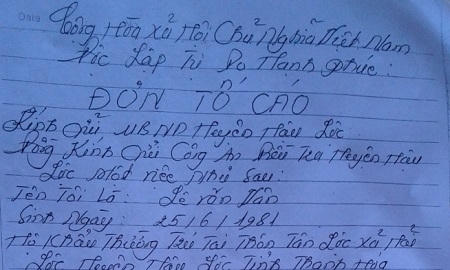 Cộng Hòa xả Hôi Chủ Nghĩa Việt Nam
Độc Lập Tự Do Hạnh phúc:
ĐƠN TỐ CÁO
Kính Gửi UBND Huyện Hậu Lộc
Đồng Kính Gửi Công An Điều Tra Huyện Hậu
Lộc một việc Như Sau:
Tên Tôi Là: Lê văn Vân
Sinh Ngày: 25/6/1981
Hộ Khẩu Thường Trú Tại Thôn Tân Lộc xả Hải
Lộc Huyện Hậu Lộc Tỉnh Thanh Hóa